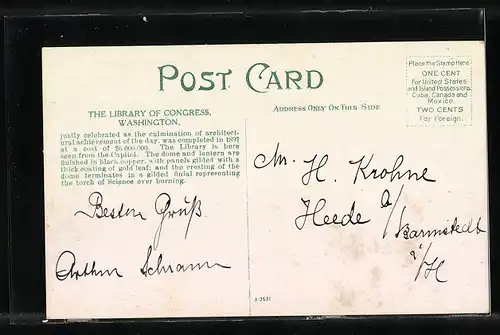 POST CARD
Place the Stamp Here
ONE CENT
For United States
and Island Possessions
Cuba, Canada and
Mexico.
TWO CENTS
For Foreign.
THE LIBRARY OF CONGRESS,
WASHINGTON,
ADDRESS ONLY ON THIS SIDE
justly celebrated as the culmination of architect-
ural achievement of the day, was completed in 1897
at a cost of $6,000,000. The Library is here
seen from the Capitol. The dome and lantern are
finished in black copper, with panels gilded with a
thick coating of gold leaf; and the cresting of the
dome terminates in a gilded finial representing
the torch of Science ever burning.
H. Krohne
Heede a/
Barmstedt
i/H
Besten Gruß
Arthur Schramm